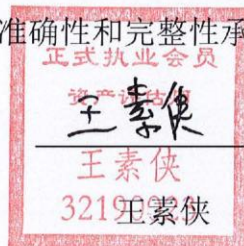 准确性和完整性承
正式执业会员
资产评估师
王素侠
王素侠
3219
王素侠